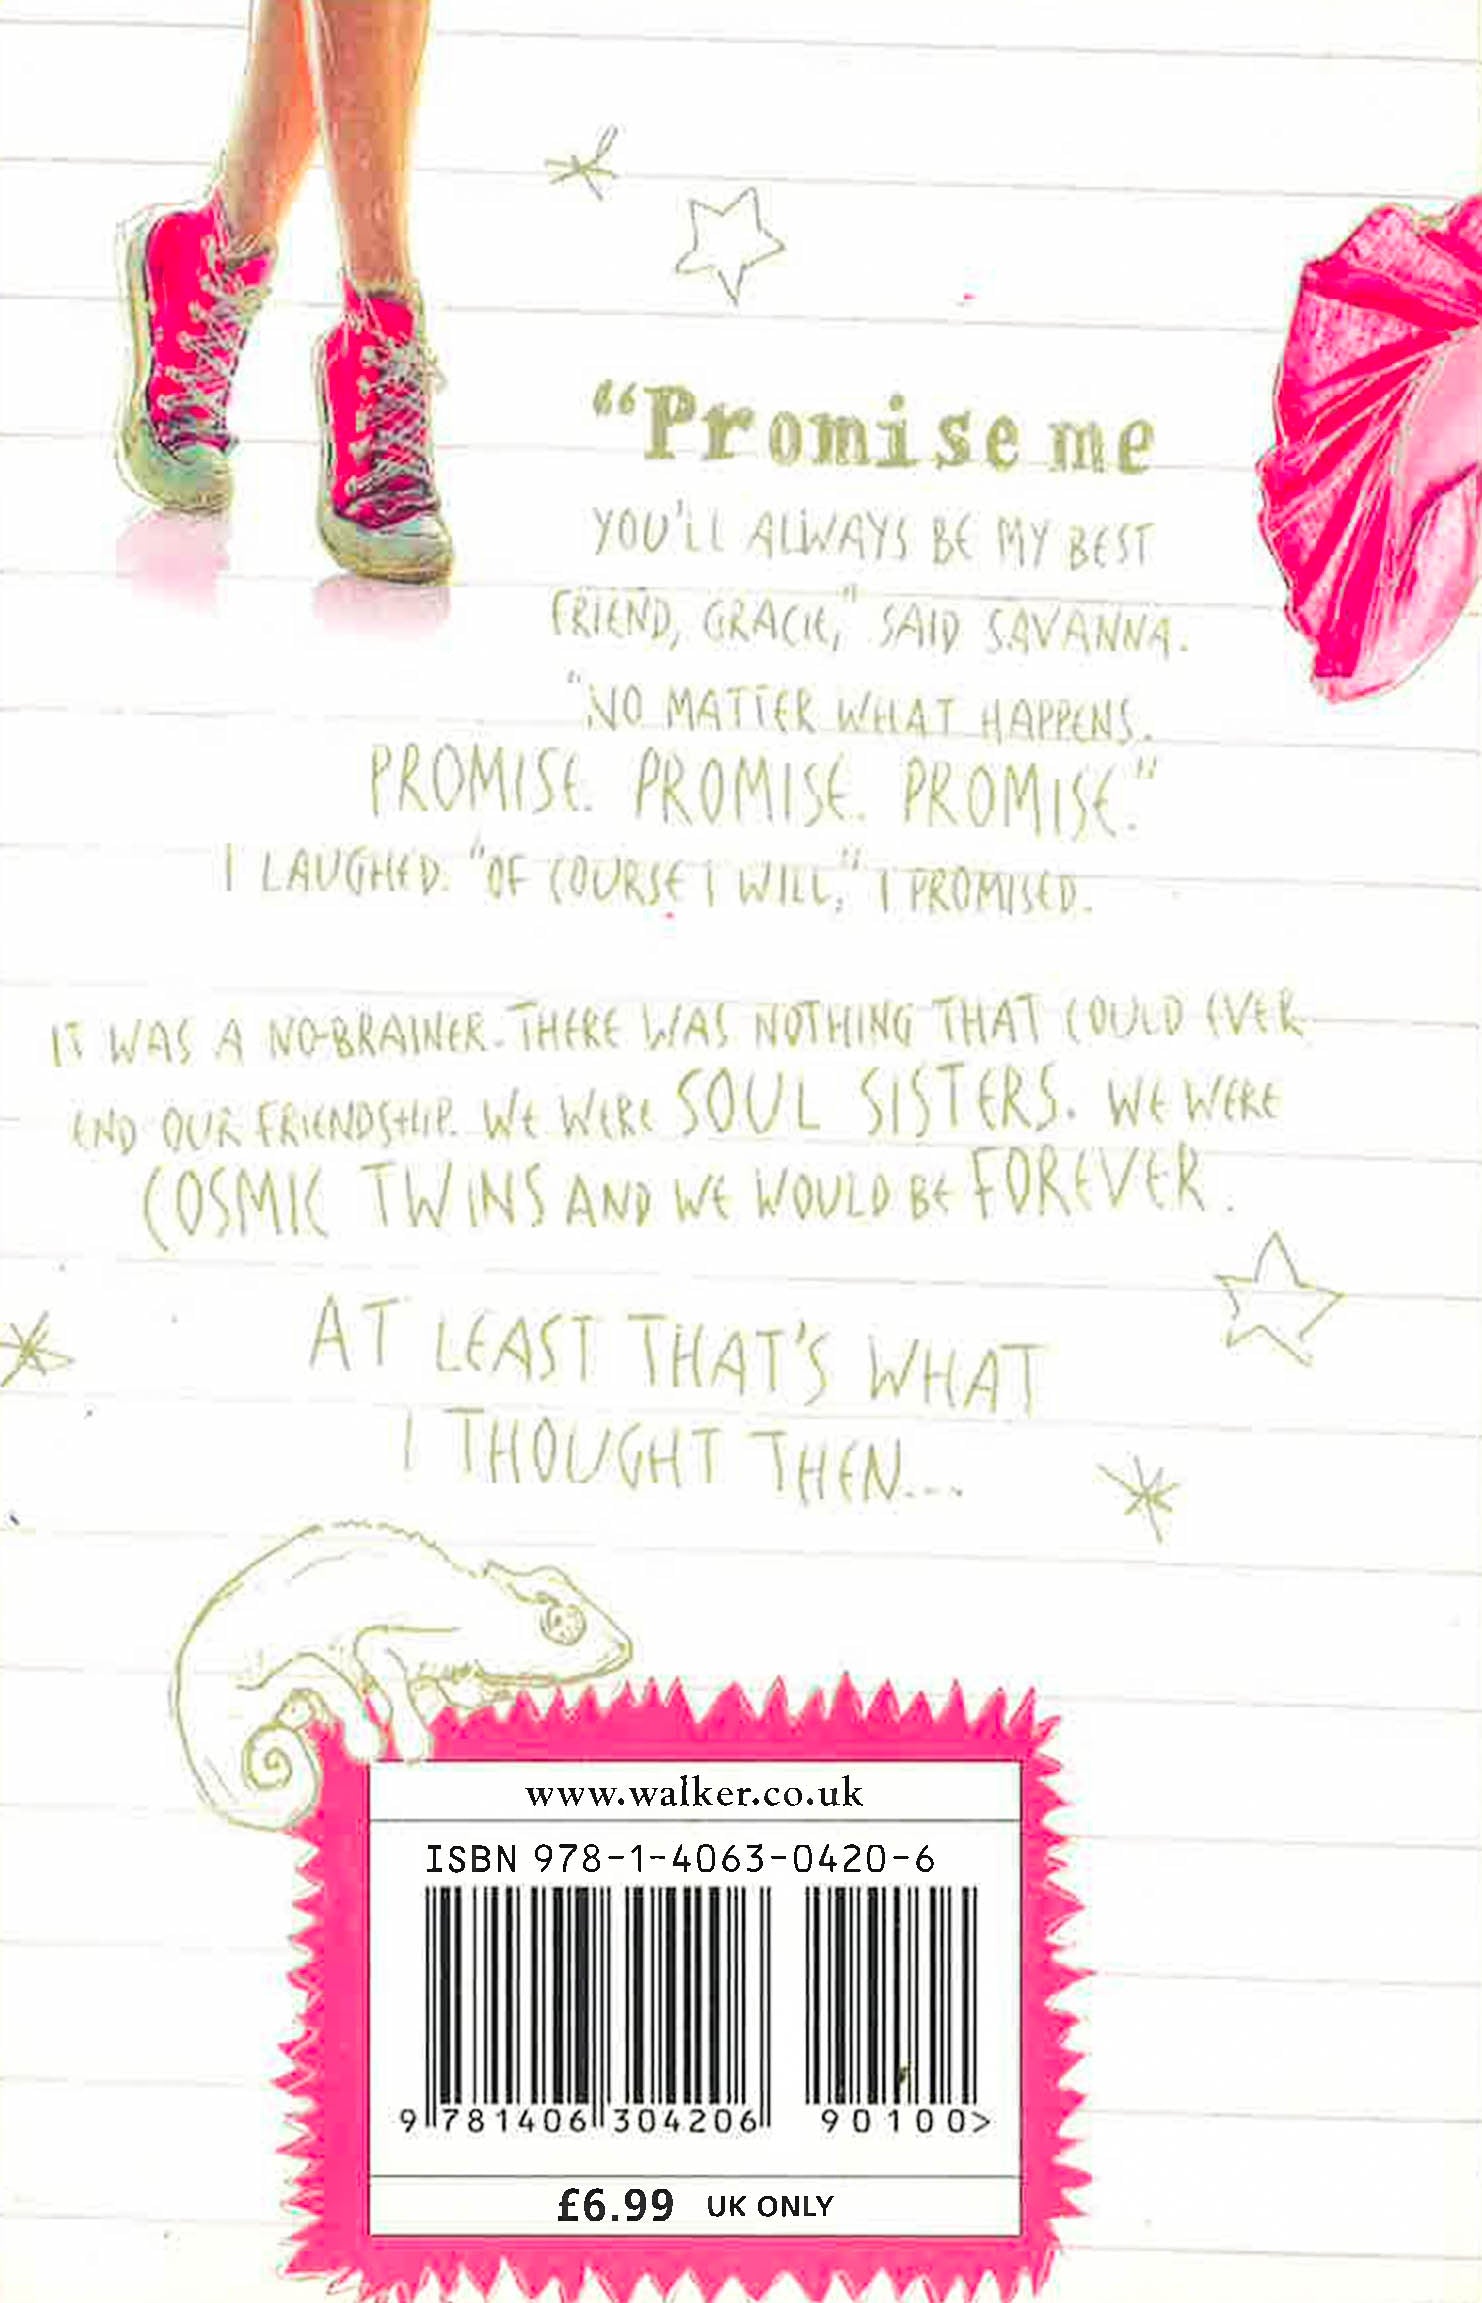 “Promise me
YOU'LL ALWAYS BE MY BEST
FRIEND, GRACIE," SAID SAVANNA.
"NO MATTER WHAT HAPPENS.
PROMISE. PROMISE. PROMISE."
I LAUGHED. "OF COURSE I WILL," I PROMISED.
IT WAS A NO-BRAINER. THERE WAS NOTHING THAT COULD EVER
END OUR FRIENDSHIP. WE WERE SOUL SISTERS. WE WERE
COSMIC TWINS AND WE WOULD BE FOREVER.
AT LEAST THAT'S WHAT
I THOUGHT THEN...
www.walker.co.uk
ISBN 978-1-4063-0420-6
9 781406 304206 90100>
£6.99 UK ONLY